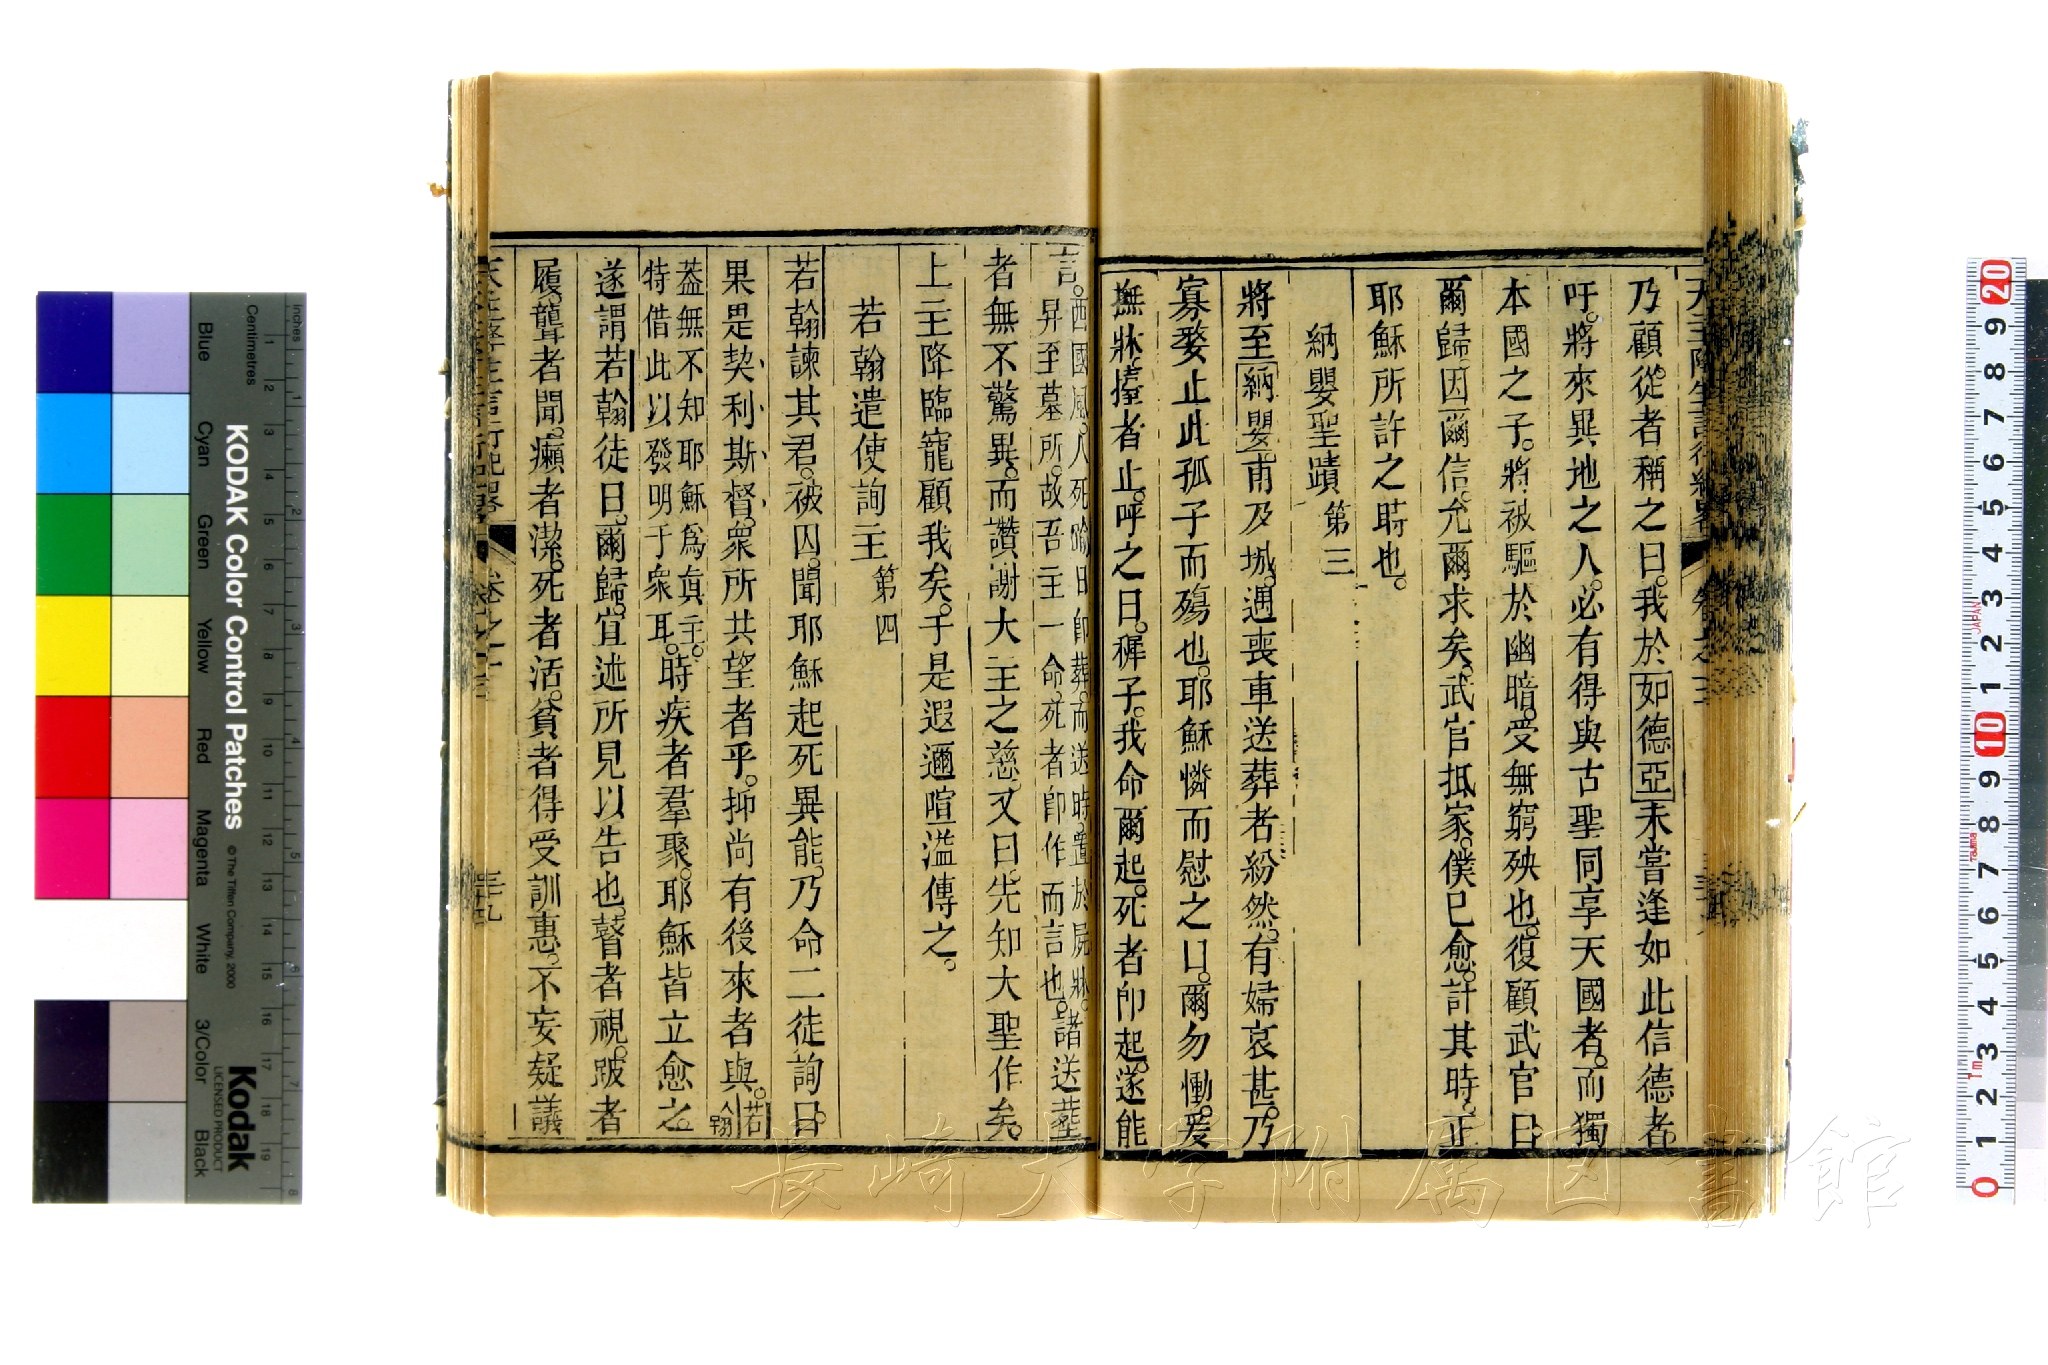 乃顧從者稱之曰。我於如德亞未嘗逢如此信德者。
吁。將來異地之人。必有得與古聖同享天國者。而獨
本國之子。將被驅於幽暗。受無窮殃也。復顧武官曰。
爾歸。因爾信。允爾求矣。武官抵家。僕已愈。計其時。正
耶穌所許之時也。
納嬰聖蹟 第三
將至納嬰甫及城。遇喪車送葬者紛然。有婦哀甚。乃
寡婺止此孤子而殤也。耶穌憐而慰之曰。爾勿慟。爰
撫牀。擡者止。呼之曰。穉子。我命爾起。死者卽起。遂能
言。西國風。人死踰日卽葬。而送時置於屍牀。
昇至墓所。故吾主一命。死者卽作而言也。諸送葬
者無不驚異。而讚謝大主之慈。又曰。先知大聖作矣。
上主降臨寵顧我矣。于是遐邇喧溢傳之。
若翰遣使詢主 第四
若翰諫其君。被囚。聞耶穌起死異能。乃命二徒詢曰。
果是契利斯督。衆所共望者乎。抑尚有後來者與。若翰
蓋無不知耶穌爲眞主。
特借此以發明于衆耳。時疾者羣聚。耶穌皆立愈之。
遂謂若翰徒曰。爾歸。宜述所見以告也。瞽者視。跛者
履。聾者聞。癩者潔。死者活。貧者得受訓惠。不妄疑議
天主降生言行紀畧 卷之三 三十九
KODAK Color Control Patches
© The Tiffen Company, 2000
Kodak
LICENSED PRODUCT
inches
Centimetres
Blue
Cyan
Green
Yellow
Red
Magenta
White
3/Color
Black
長崎大学附属図書館
JAPAN
Tajima
1m